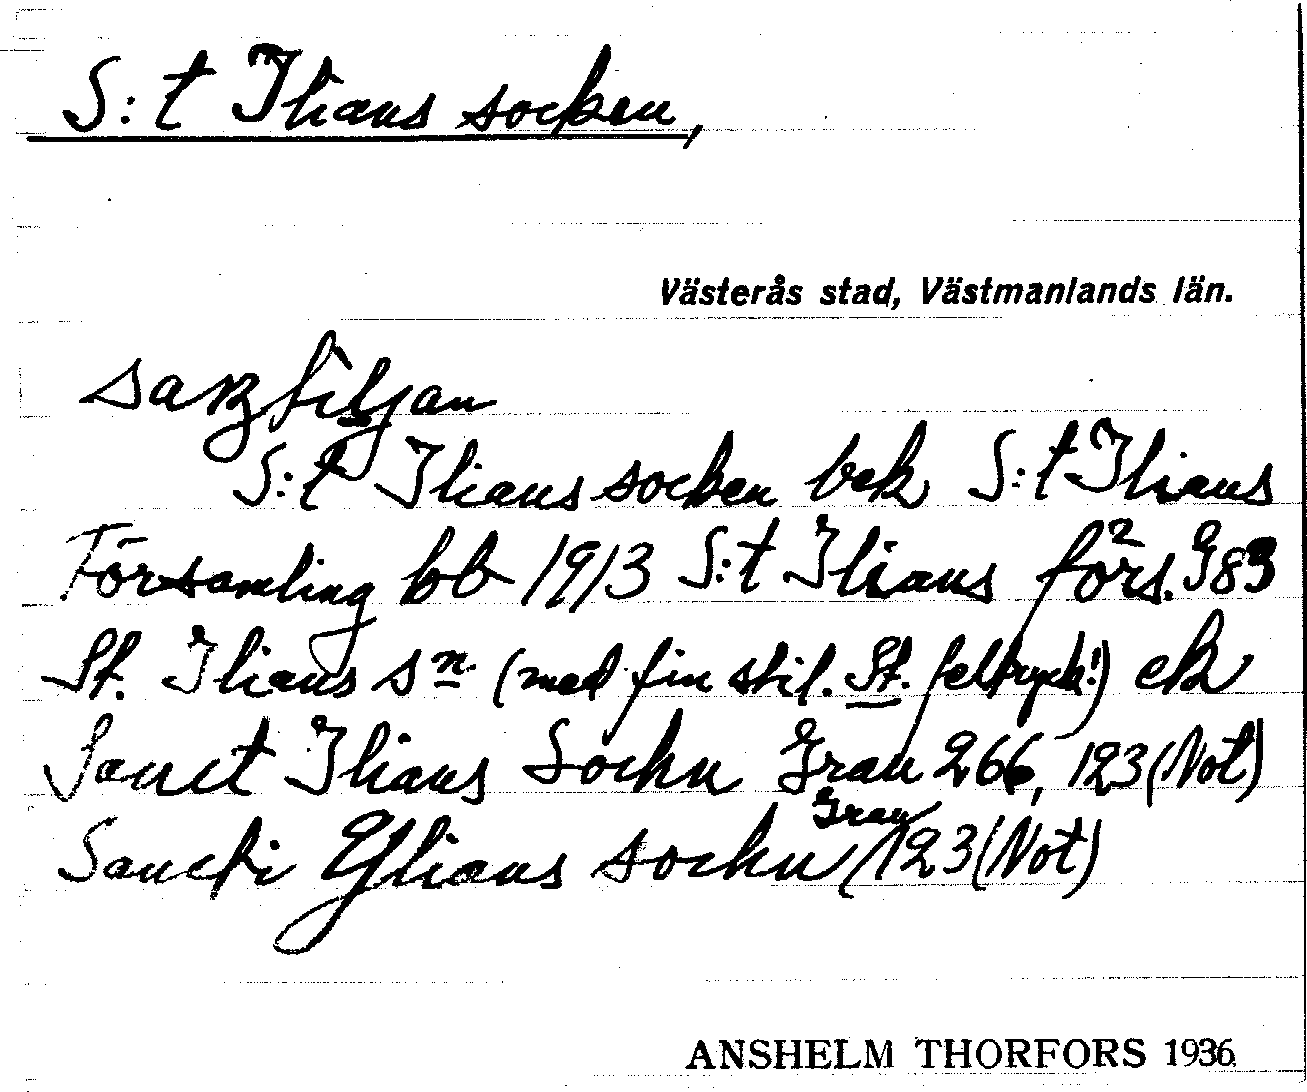 S:t Ilians socken,
Västerås stad, Västmanlands län.
S:t Ilians socken bek S:t Ilians
Församling bb 1913 S:t Ilians förs. G83
St. Ilians sn (med fin stil. St. feltryck!) ek
Sanct Ilians Sochn Grau 266, 123 (Not)
Sancti Ylians sochn Grau 123 (Not)
ANSHELM THORFORS 1936